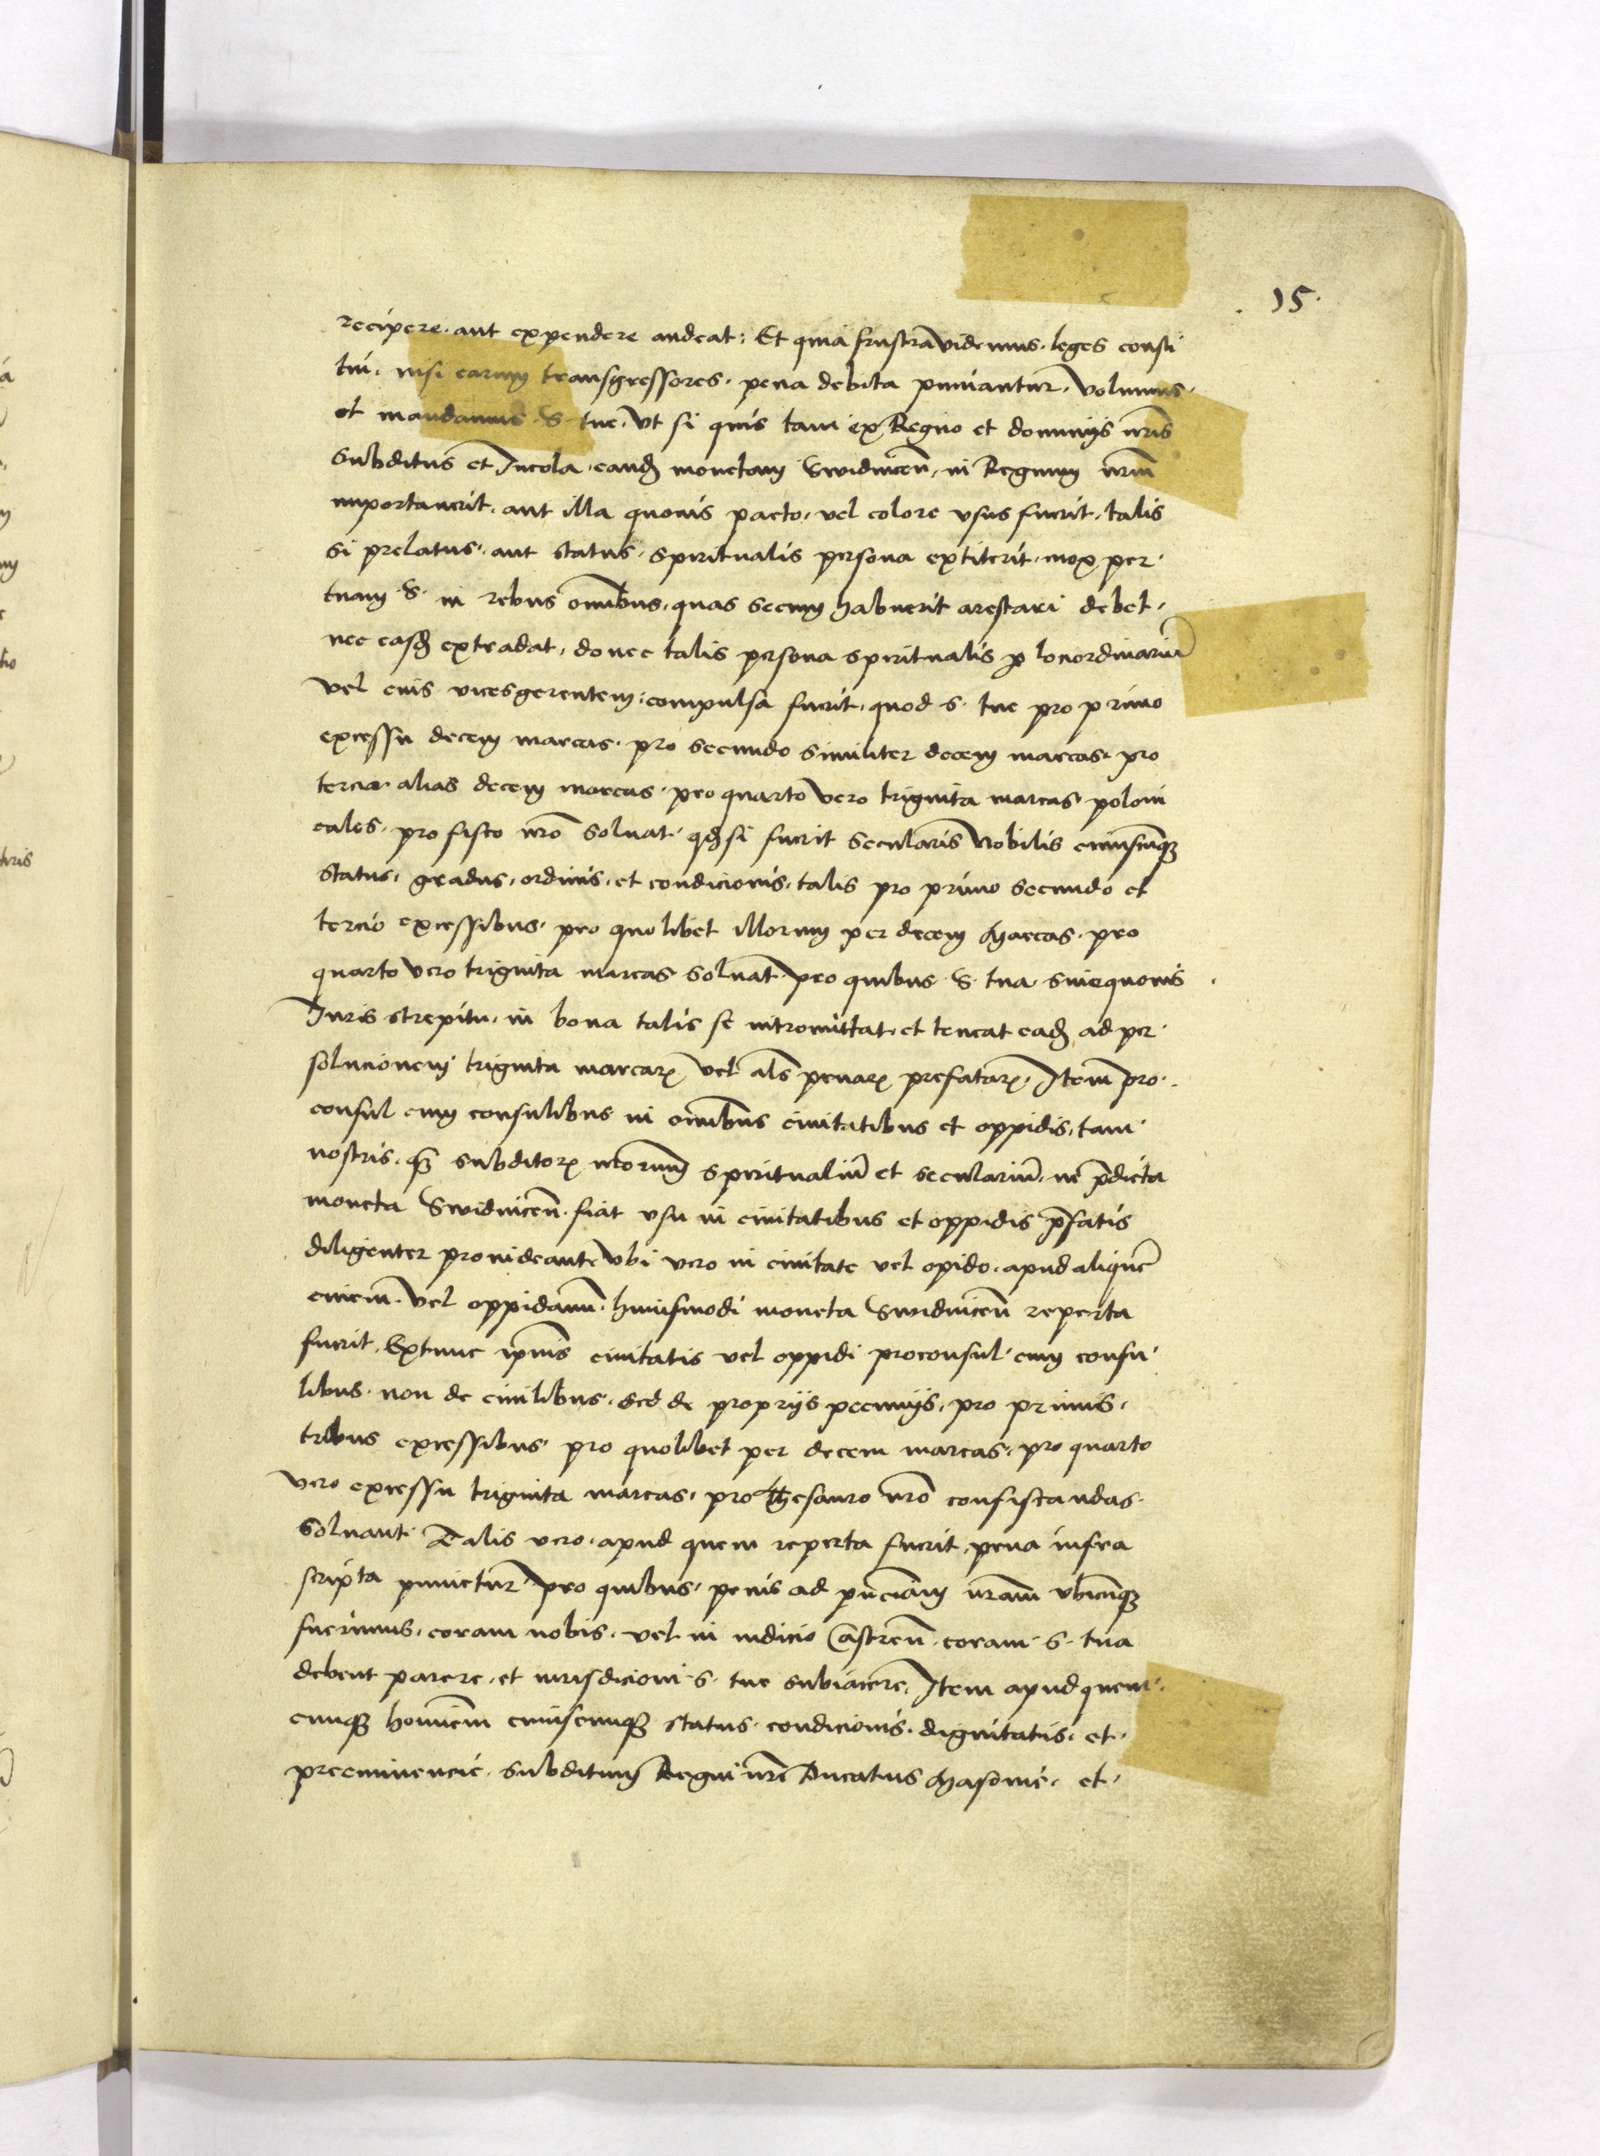 15.
recipere. aut expendere audeat: Et quia frustra videmus. leges consti
tui. nisi earum transgressores. pena debita puniantur, Volumus.
et mandamus S. tue, vt si quis tam ex Regno et dominijs nris
Subditus et Incola, eandem monetam Swidnicen, in Regnum nrm
importauerit, aut illa quouis pacto, vel colore vsus fuerit, talis
si prelatus, aut status, spiritualis persona extiterit, mox per
tuam S. in rebus omnibus, quas secum habuerit arestari debet,
nec easdem extradat, donec talis persona spiritualis per loci ordinarium
vel eius vicesgerentem, compulsa fuerit, quod S. tue pro primo
excessu decem marcas, pro secundo similiter decem marcas, pro
tercio alias decem marcas, pro quarto vero triginta marcas poloni
cales, pro fisco nro soluat, qdsi fuerit secularis Nobilis cuiuscunque
status, gradus, ordinis, et condicionis, talis pro primo secundo et
tercio excessibus, pro quolibet illorum per decem Marcas, pro
quarto vero triginta marcas soluat, pro quibus S. tua, sine quouis
Iuris strepitu, in bona talis se intromittat, et teneat eadem ad per
solucionem triginta marcarum vel als penarum prefatarum, Item pro
consul cum consulibus in omnibus ciuitatibus et oppidis, tam
nostris, quam subditorum nrorum spiritualium et secularium, ne predicta
moneta Swidnicen. fiat vsu in ciuitatibus et oppidis prefatis
diligenter prouideant, vbi vero in ciuitate vel opido, apud aliquem
ciuem, vel oppidanum, huiusmodi moneta Swidnicen reperta
fuerit, Extunc ipsius ciuitatis vel oppidi proconsul cum consu
libus, non de ciuilibus, sed de proprijs pecunijs, pro primis
tribus excessibus pro quolibet per decem marcas, pro quarto
vero excessu triginta marcas, pro Thesauro nro confiscandas
soluant. Talis vero, apud quem reperta fuerit, pena infra
scripta punietur, pro quibus, penis ad pnciam nram vbicunque
fuerimus, coram nobis, vel in iudicio Castren. coram S. tua
debent parere, et iurisdicioni S. tue subiacere, Item apud quem
cunque hominem cuiuscunque status, condicionis, dignitatis, et
preeminencie, subditum Regni nri Ducatus Masouie, et